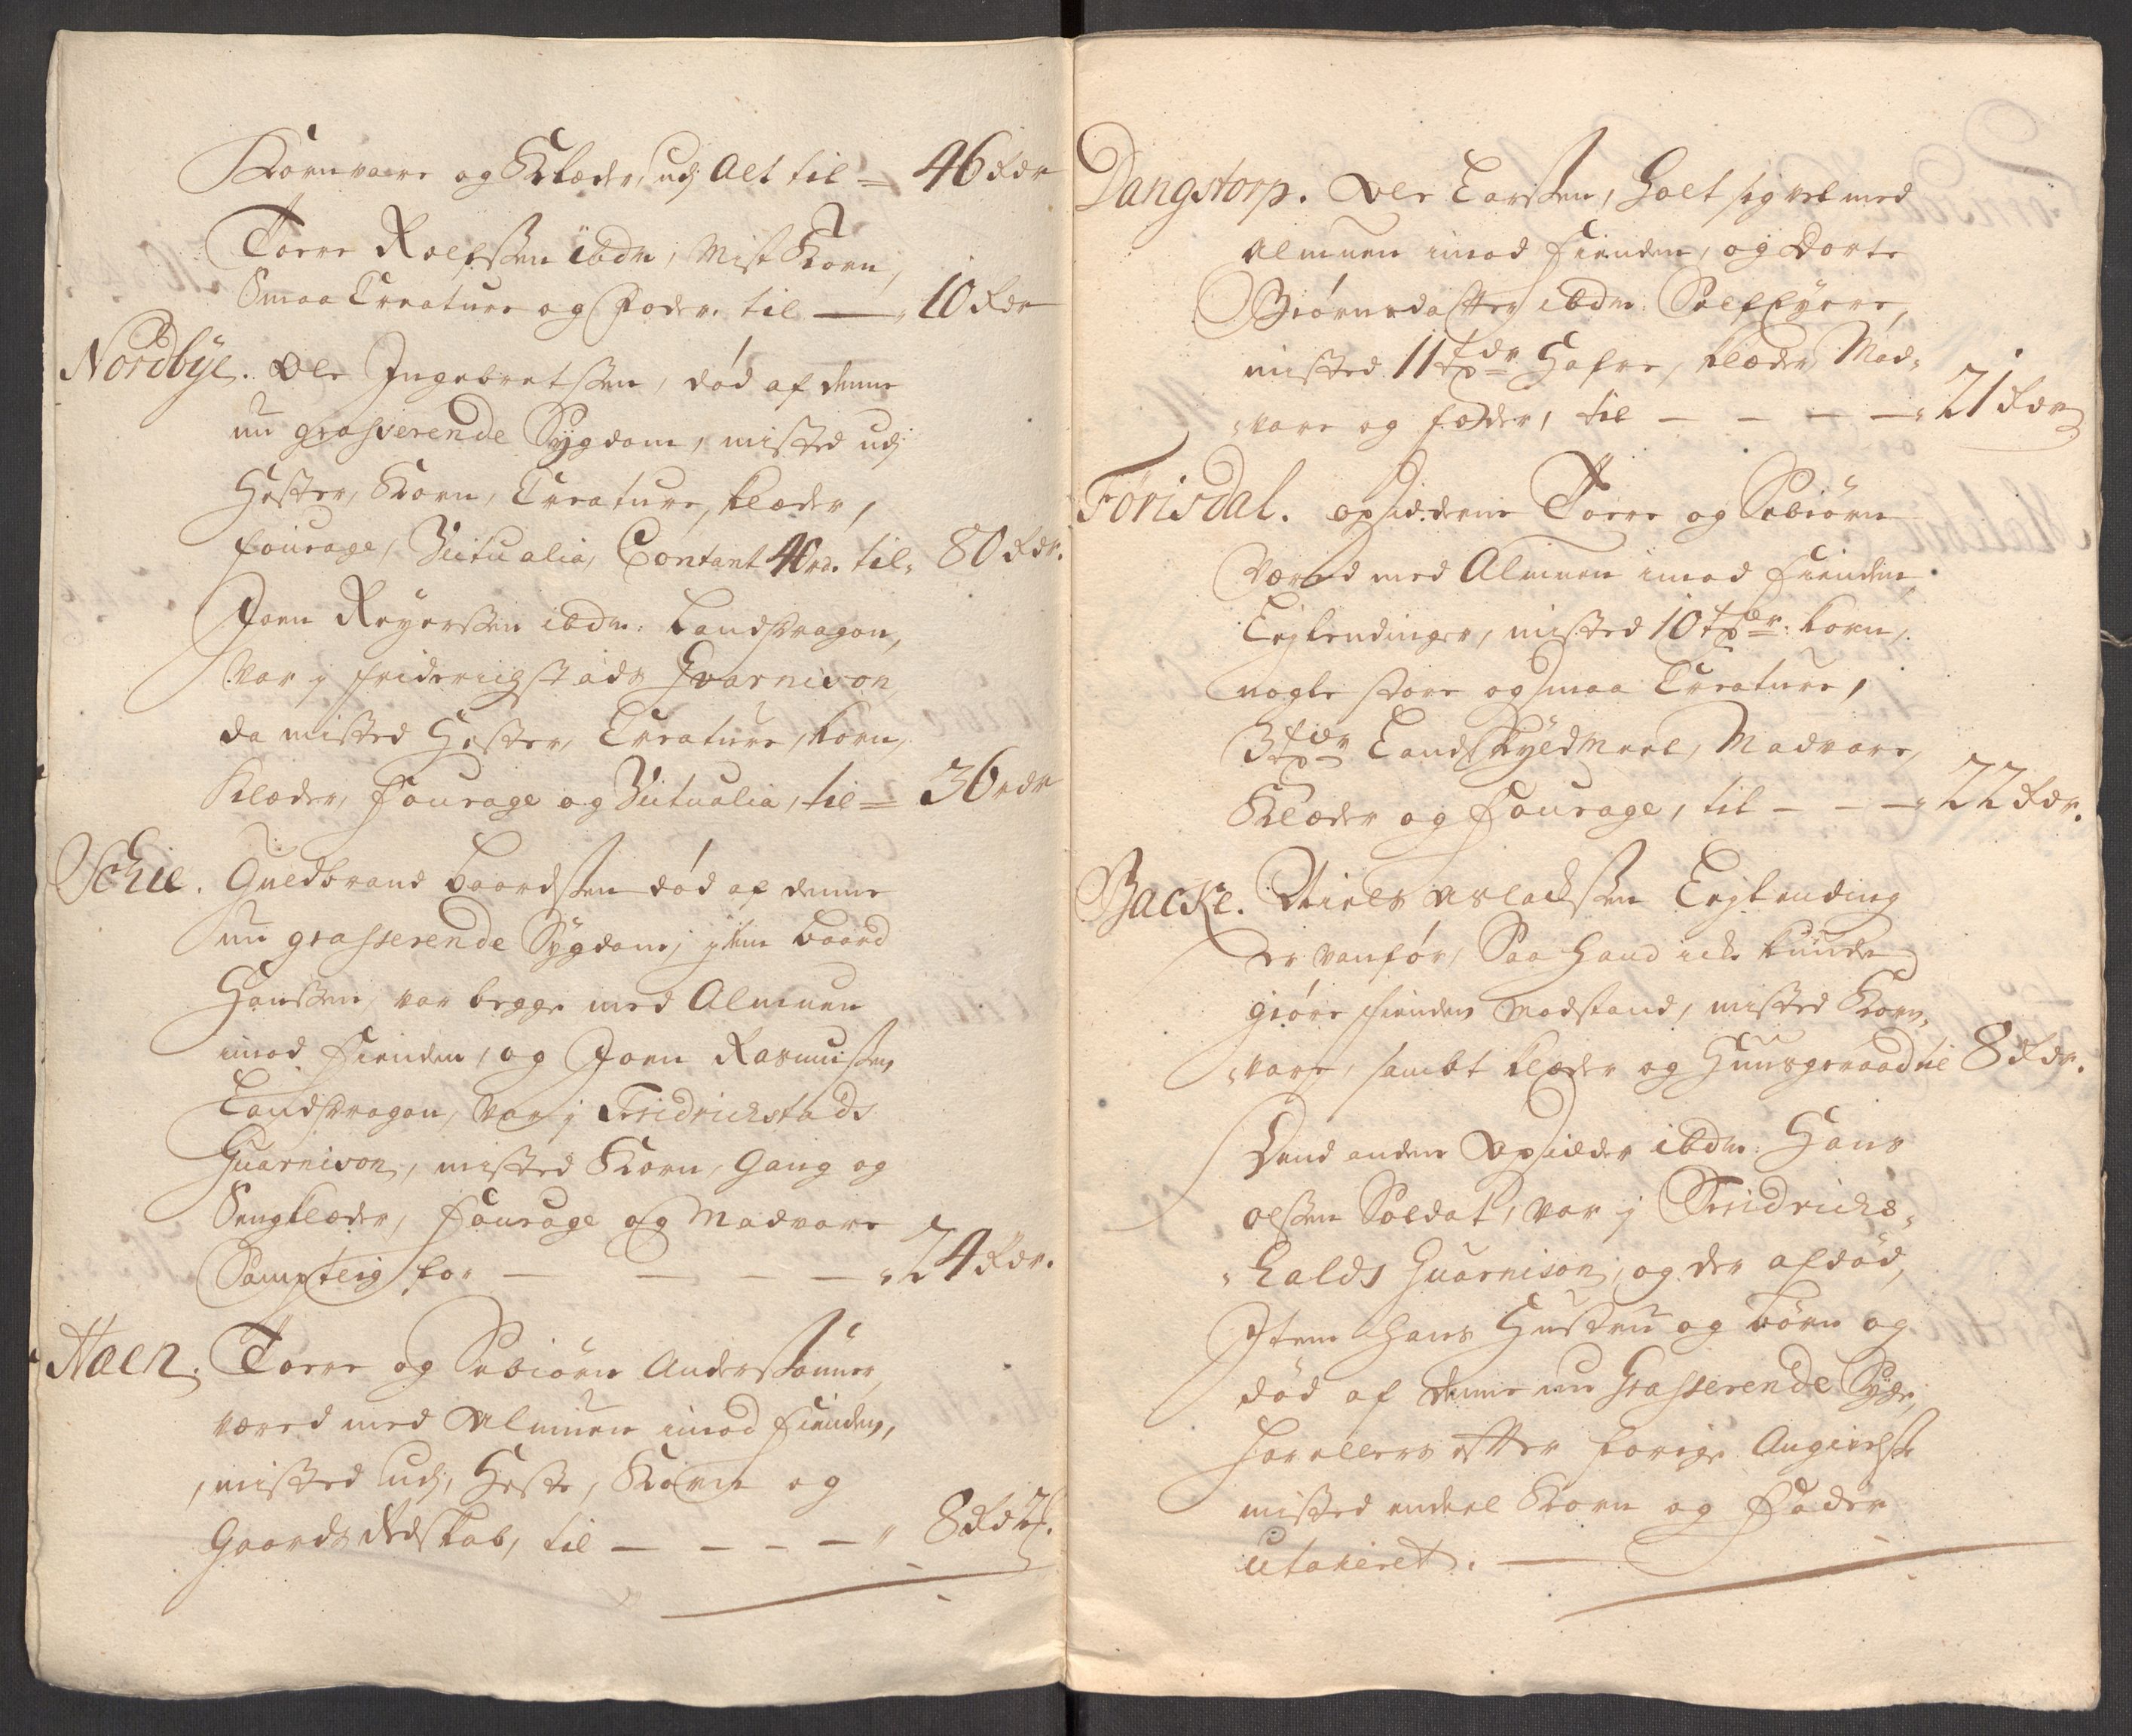 Kornvare og Klæder, udj Alt til = 46 rdr
Torre Rolfssen ibdm, Mist Korn,
Smaa Creature og Foder til — 10 rdr
Nordbye. Ole Ingebretssen, død af denne
nu grasserende Sygdom, misted udj
Hester, Korn, Creature, klæder,
fourage, Victualia, Contant 40 rd. til 80 rdr.
Joen Reyerssen ibdm: Landdragon,
var j Friderichstads Guarnison,
da misted Hester, Creature, korn,
Klæder, Fourage og Victualia, til = 36 rdr
Schie. Guldbrand Baardssen død af denne
nu grasserende Sygdom, jtem Baard
Hanssen, var begge med Almuen
imod Fienden, og Joen Rasmussen
Landdragon, var j Fridrichstads
Guarnison, misted Korn, Gang og
Sengklæder, Fourage og Madvare
Sampteig for — — — — 24 rdr.
Haen. Torre og Sebiørn Anderssønner,
været med Almuen imod Fienden,
misted udj, Heste, Korn og
Gaards Redskab, til — — — — 8 rdr.
Dangstorp. Ole Larssen, Holt sig vel med
Almuen imod Fienden, og Dorte
Biørnsdatter ibdm: Selffyere,
misted 11 tdr Hafre, klæder, Mad-
vare og foder, til — — — — 21 rdr
Førisdal. opsidderne Torre og Sebiørn
Været med Almuen imod Fienden
Leylendinger, misted 10 tdr. korn,
nogle store og smaa Creature,
3 tdr Landskyldmeel, Madvare,
Klæder og Fourage, til — — — 22 rdr.
Backe. Niels Aslachssen Leylending
er vanfør, Saa Hand icke kunde
giøre Fienden Modstand, misted Korn-
vare, sambt klæder og Huusgeraad til 8 rdr.
Dend anden Opsidder ibdm: Hans
Olssen Soldat, var j Fridrichs-
Halds Guarnison, og der afdød,
Item Hans Hustru og børn og
død af denne nu Grasserende Syge,
har ellers efter forige Angivelse
misted endeel Korn og Foder
utaxeret. —